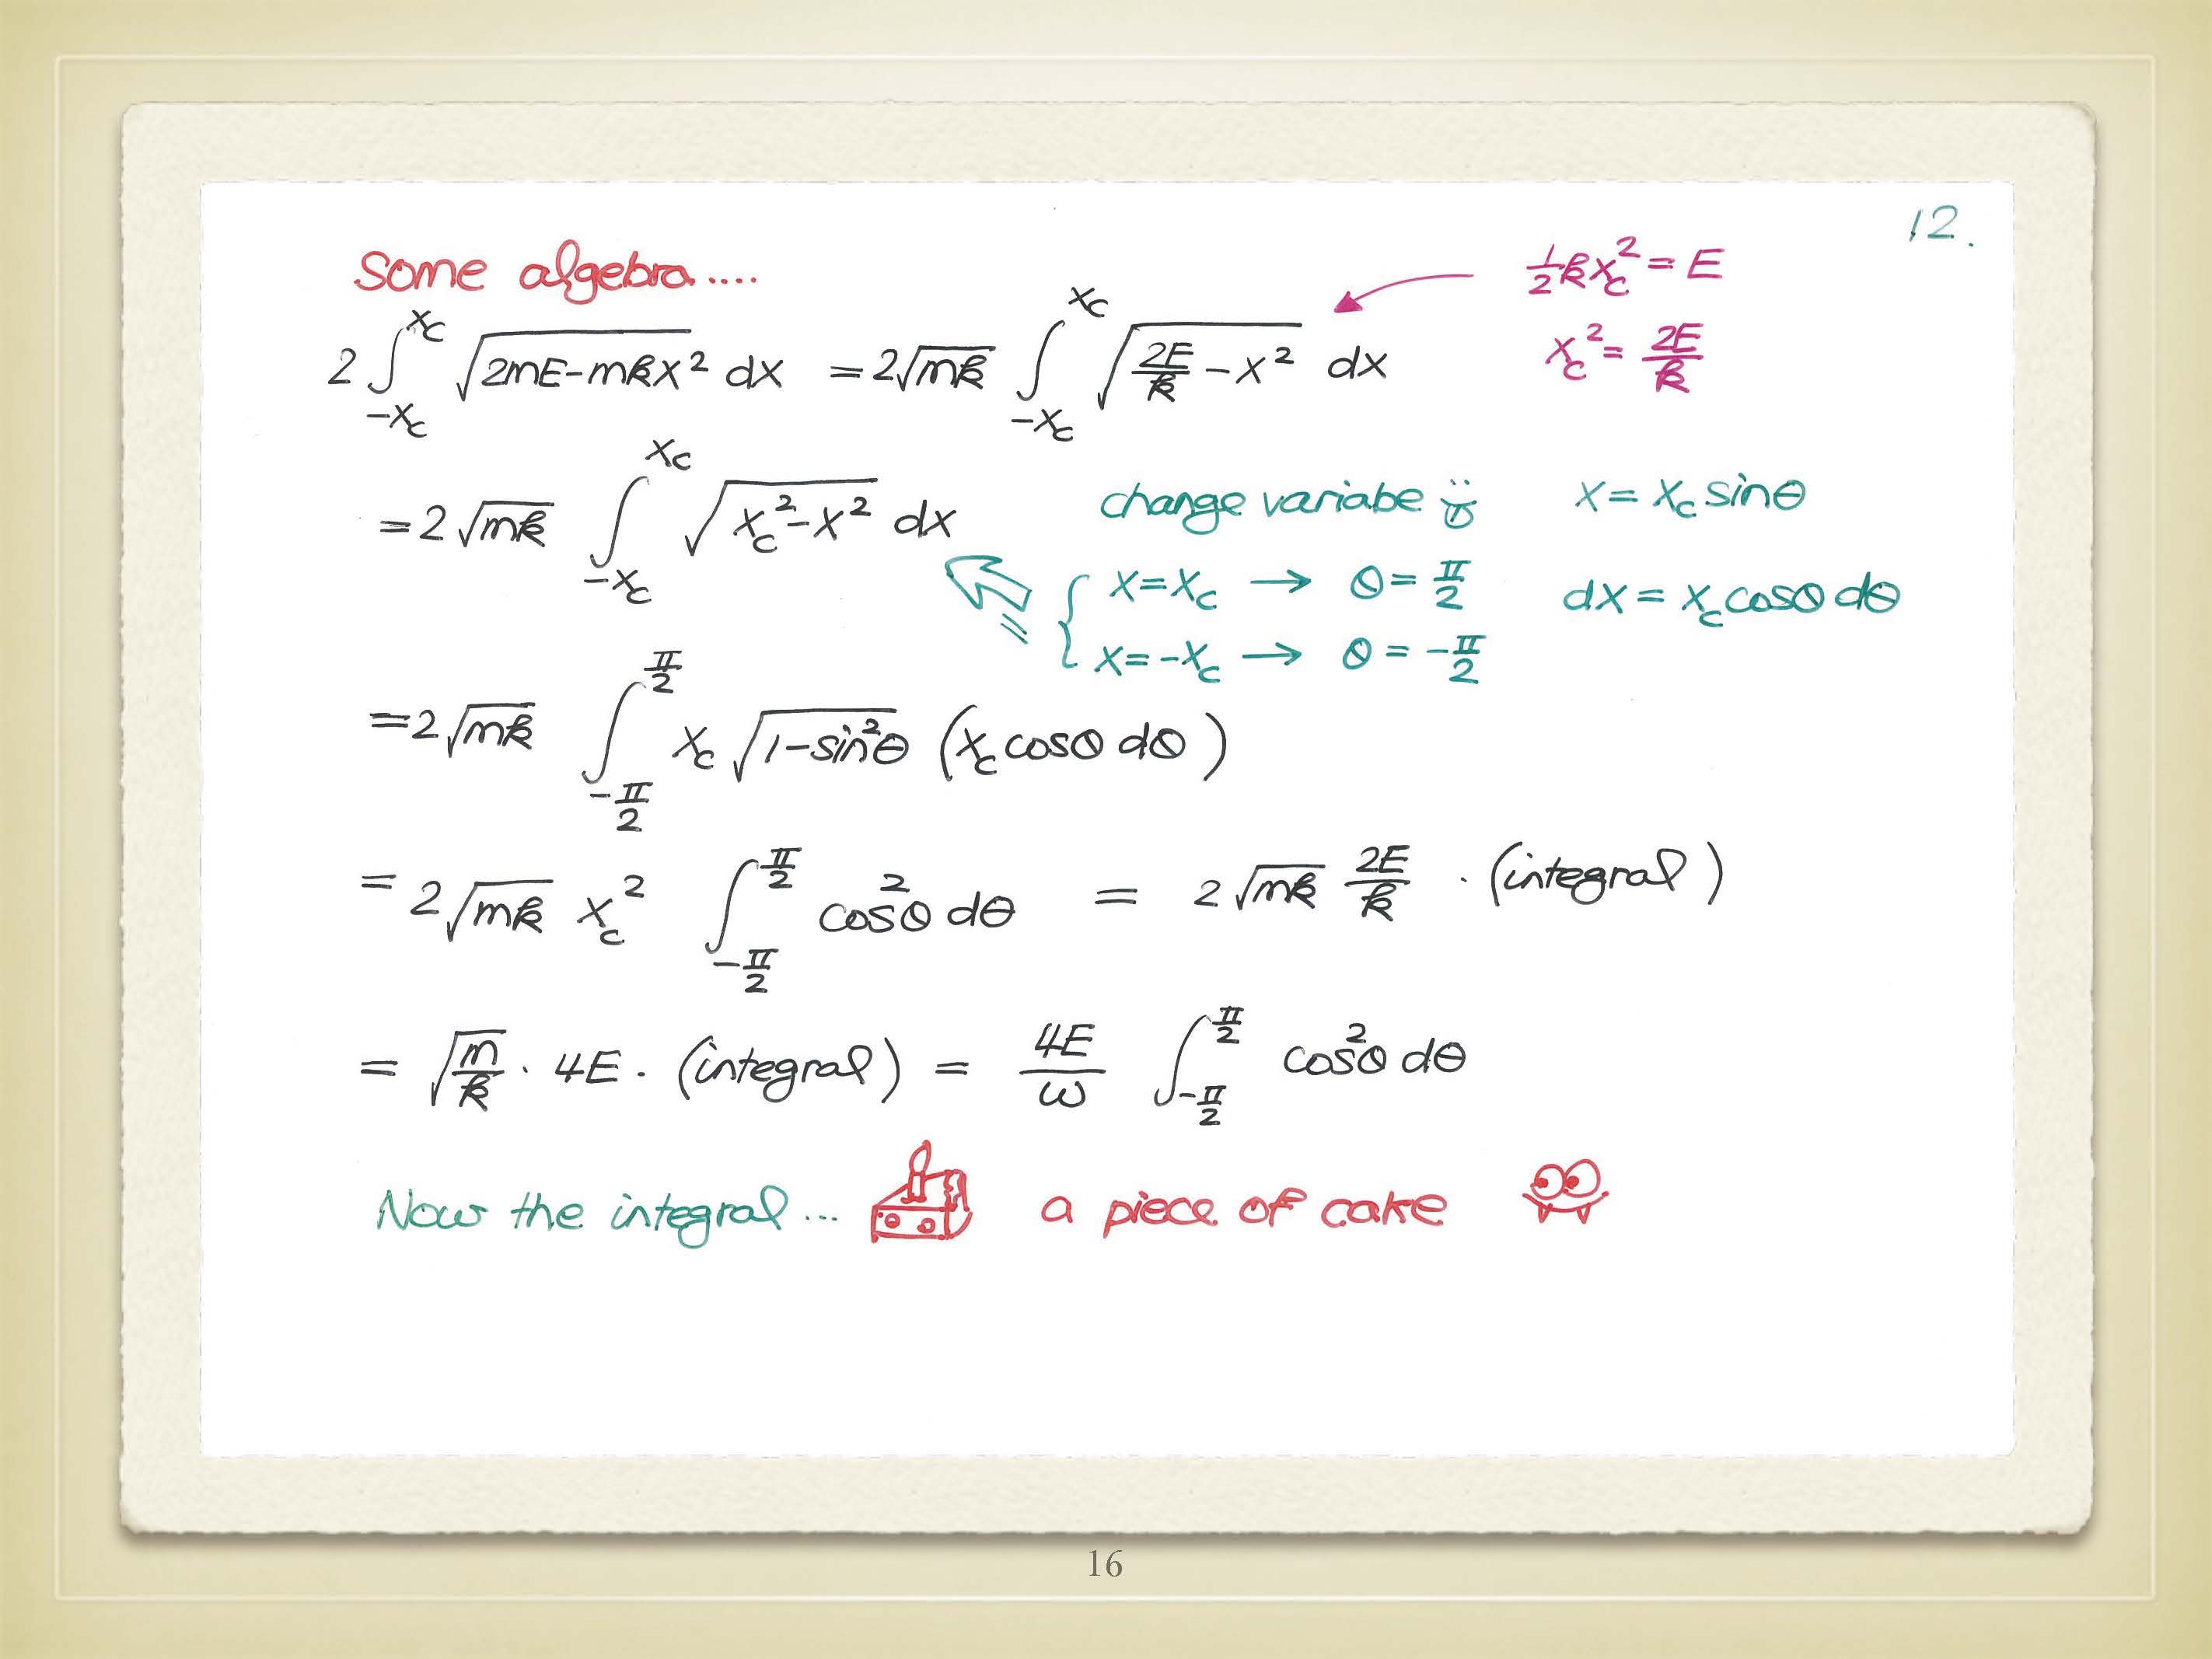 12.
Some algebra....
2 ∫_{-x_c}^{x_c} √(2mE-mkx²) dx = 2√(mk) ∫_{-x_c}^{x_c} √(2E/k - x²) dx
½kx_c² = E
x_c² = 2E/k
= 2√(mk) ∫_{-x_c}^{x_c} √(x_c²-x²) dx
change variabe x = x_c sinθ
{ x=x_c → θ= π/2 dx = x_c cosθ dθ
x=-x_c → θ = -π/2
=2√(mk) ∫_{-π/2}^{π/2} x_c √(1-sin²θ) (x_c cosθ dθ)
= 2√(mk) x_c² ∫_{-π/2}^{π/2} cos²θ dθ = 2√(mk) 2E/k · (integral)
= √(m/k) · 4E · (integral) = 4E/ω ∫_{-π/2}^{π/2} cos²θ dθ
Now the integral... a piece of cake
16